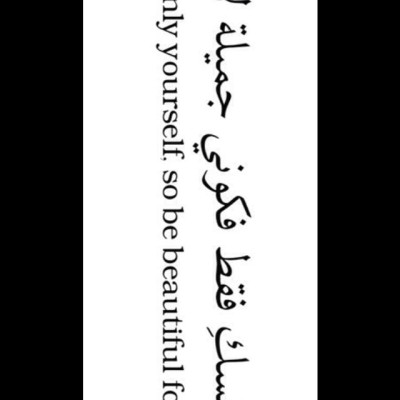 سكِ فقط فكوني جميلة
nly yourself, so be beautiful fo